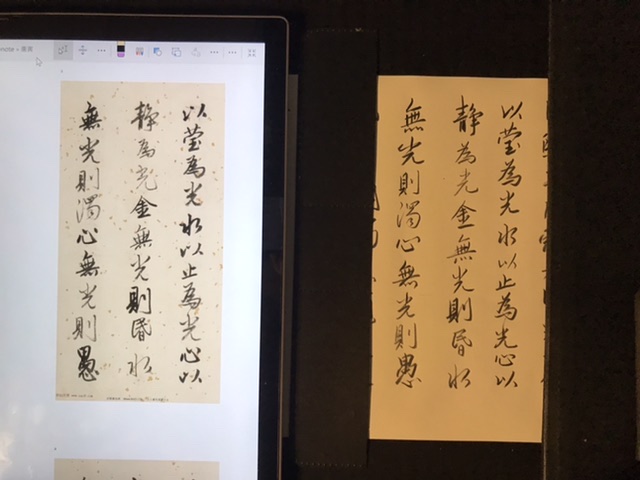 以莹為光水以止為光心以
静為光金無光則昏水
無光則濁心無光則愚
以莹為光水以止為光心以
静為光金無光則昏水
無光則濁心無光則愚